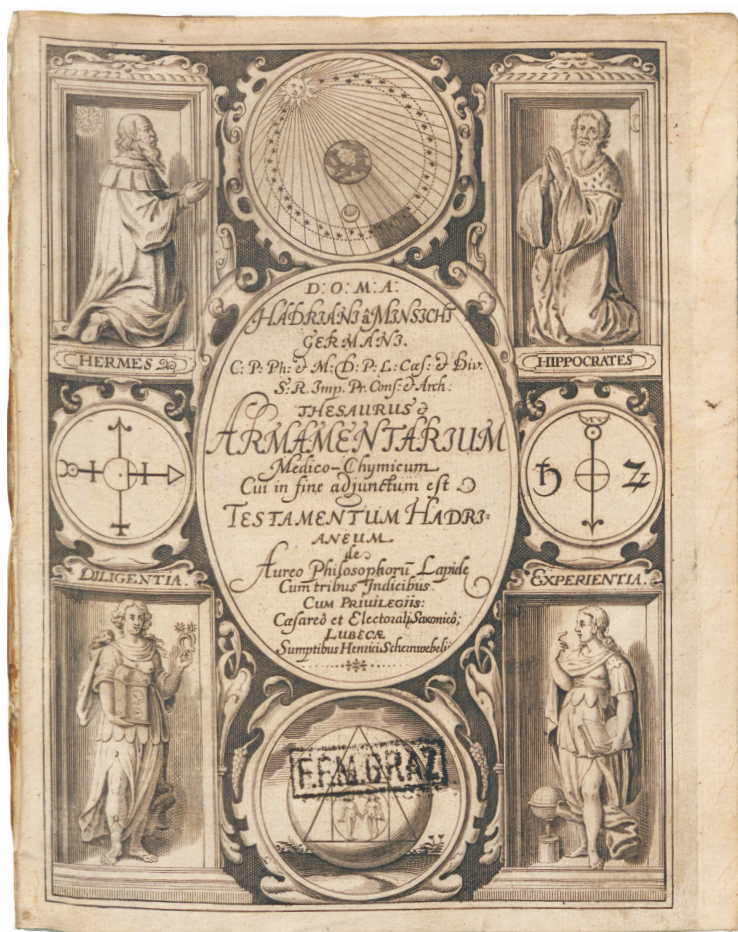 D: O: M: A:
HADRIANI â MINSICHT
GERMANI.
C: P: Ph: & M: D: P: L: Cæs: & Div.
S: R. Imp. Pr. Cons: & Arch:
THESAURUS &
ARMAMENTARIUM
Medico-Chymicum
Cui in fine adjunctum est
TESTAMENTUM HADRI:
ANEUM
de
Aureo Philosophorū Lapide
Cum tribus Indicibus.
CUM PRIUILEGIIS:
Cæsareô et Electorali Saxonicô;
LUBECÆ
Sumptibus Henrici Schernwebelÿ
HERMES
HIPPOCRATES
DILIGENTIA.
EXPERIENTIA.
F.F.M. GRAZ